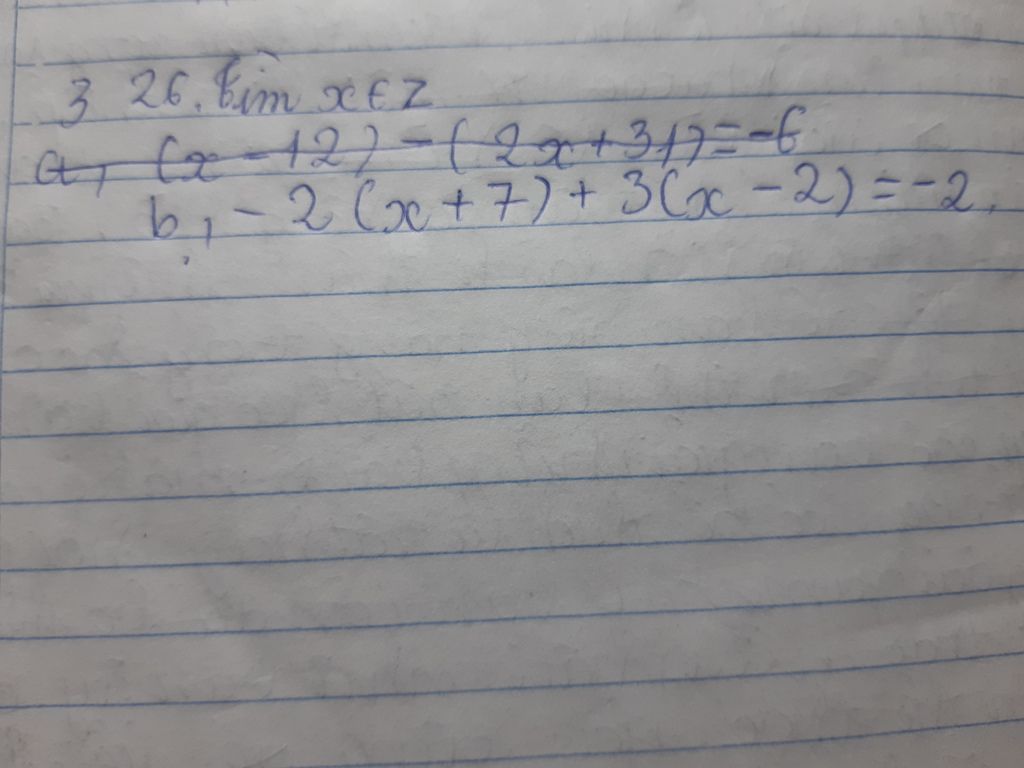 3 26. tìm x∈Z
a, (x - 12) - (2x + 31) = -6
b, - 2 (x + 7) + 3(x - 2) = -2.